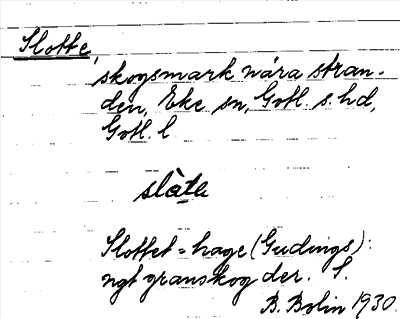 Slotte,
skogsmark nära stran-
den, Eke sn, Gotl. s. hd,
Gotl. l
slà̀te
Slottet = hage (Gudings):
ngt granskog der. S.
B. Bolin 1930.